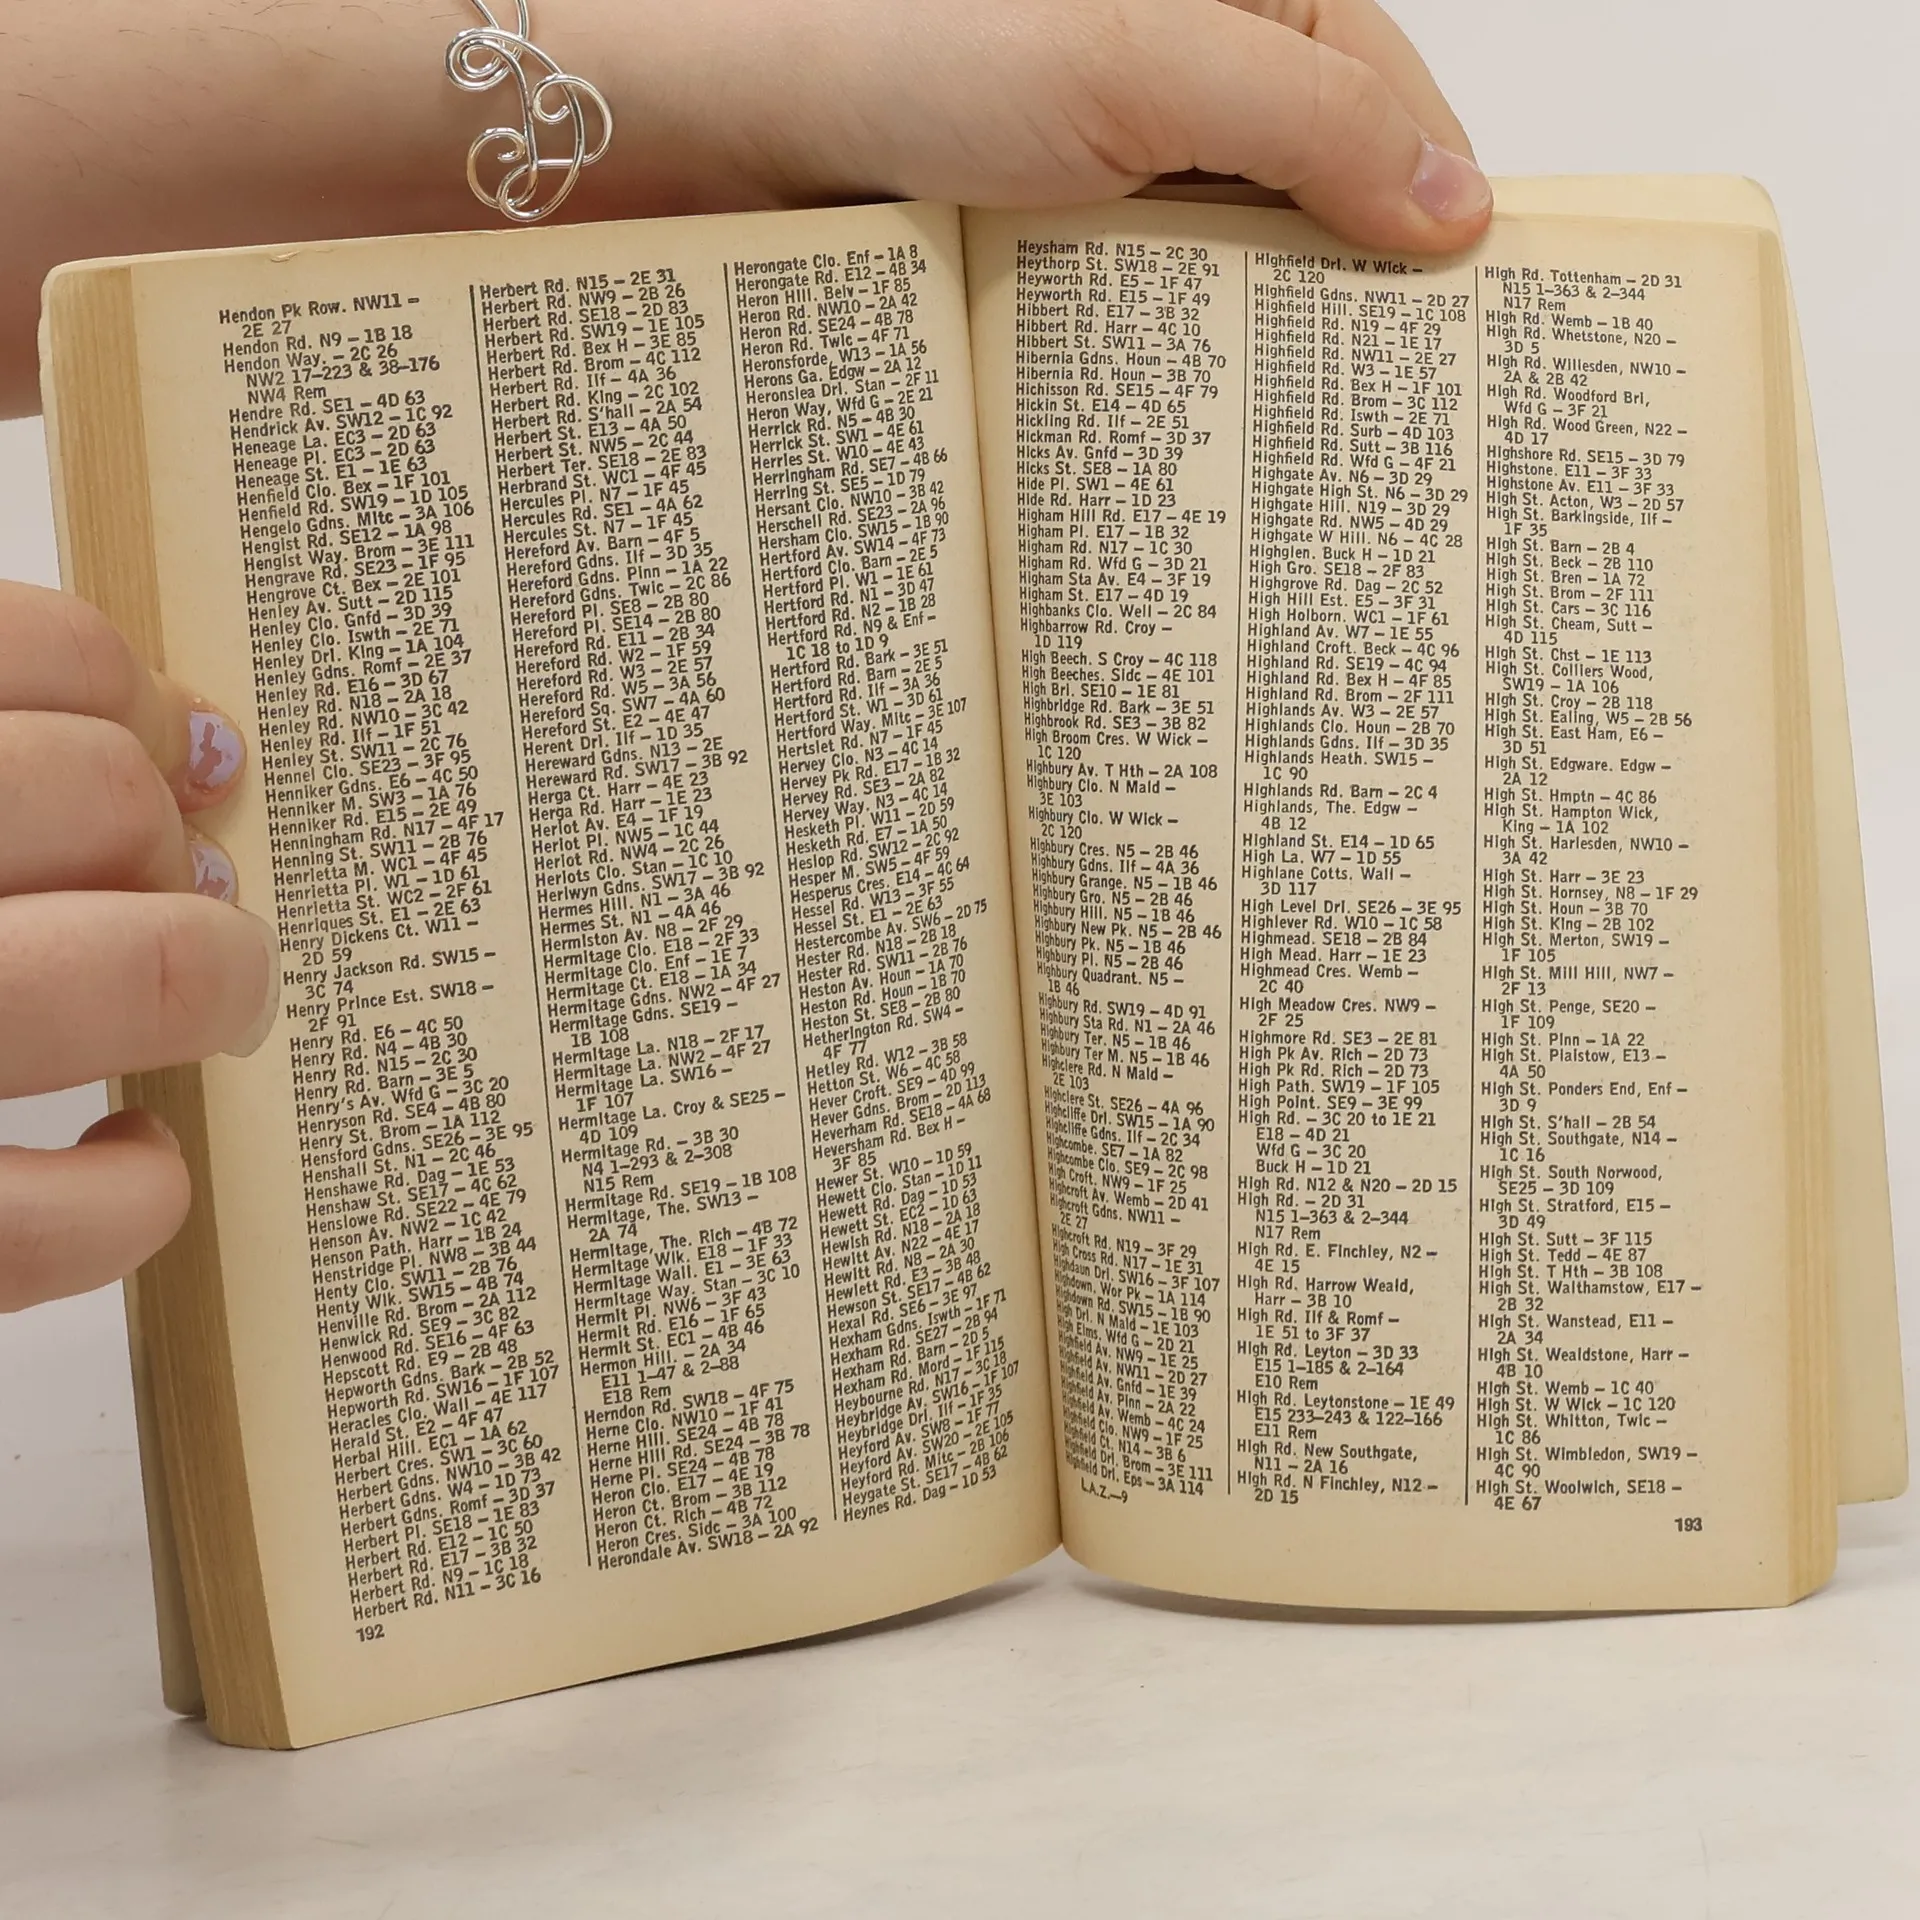 Hendon Pk Row. NW11 –
2E 27
Hendon Rd. N9 – 1B 18
Hendon Way. – 2C 26
NW2 17–223 & 38–176
NW4 Rem
Hendre Rd. SE1 – 4D 63
Hendrick Av. SW12 – 1C 92
Heneage La. EC3 – 2D 63
Heneage Pl. EC3 – 2D 63
Heneage St. E1 – 1E 63
Henfield Clo. Bex – 1F 101
Henfield Rd. SW19 – 1D 105
Hengelo Gdns. Mitc – 3A 106
Hengist Rd. SE12 – 1A 98
Hengist Way. Brom – 3E 111
Hengrave Rd. SE23 – 1F 95
Hengrove Ct. Bex – 2E 101
Henley Av. Sutt – 2D 115
Henley Clo. Gnfd – 3D 39
Henley Clo. Iswth – 2E 71
Henley Drl. King – 1A 104
Henley Gdns. Romf – 2E 37
Henley Rd. E16 – 3D 67
Henley Rd. N18 – 2A 18
Henley Rd. NW10 – 3C 42
Henley Rd. Ilf – 1F 51
Henley St. SW11 – 2C 76
Hennel Clo. SE23 – 3F 95
Henniker Gdns. E6 – 4C 50
Henniker M. SW3 – 1A 76
Henniker Rd. E15 – 2E 49
Henningham Rd. N17 – 4F 17
Henning St. SW11 – 2B 76
Henrietta M. WC1 – 4F 45
Henrietta Pl. W1 – 1D 61
Henrietta St. WC2 – 2F 61
Henriques St. E1 – 2E 63
Henry Dickens Ct. W11 –
2D 59
Henry Jackson Rd. SW15 –
3C 74
Henry Prince Est. SW18 –
2F 91
Henry Rd. E6 – 4C 50
Henry Rd. N4 – 4B 30
Henry Rd. N15 – 2C 30
Henry Rd. Barn – 3E 5
Henry's Av. Wfd G – 3C 20
Henryson Rd. SE4 – 4B 80
Henry St. Brom – 1A 112
Hensford Gdns. SE26 – 3E 95
Henshall St. N1 – 2C 46
Henshawe Rd. Dag – 1E 53
Henshaw St. SE17 – 4C 62
Henslowe Rd. SE22 – 4E 79
Henson Av. NW2 – 1C 42
Henson Path. Harr – 1B 24
Henstridge Pl. NW8 – 3B 44
Henty Clo. SW11 – 2B 76
Henty Wlk. SW15 – 4B 74
Henville Rd. Brom – 2A 112
Henwick Rd. SE9 – 3C 82
Henwood Rd. SE16 – 4F 63
Hepscott Rd. E9 – 2B 48
Hepworth Gdns. Bark – 2B 52
Hepworth Rd. SW16 – 1F 107
Heracles Clo. Wall – 4E 117
Herald St. E2 – 4F 47
Herbal Hill. EC1 – 1A 62
Herbert Cres. SW1 – 3C 60
Herbert Gdns. NW10 – 3B 42
Herbert Gdns. W4 – 1D 73
Herbert Gdns. Romf – 3D 37
Herbert Pl. SE18 – 1E 83
Herbert Rd. E12 – 1C 50
Herbert Rd. E17 – 3B 32
Herbert Rd. N9 – 1C 18
Herbert Rd. N11 – 3C 16
192
Herbert Rd. N15 – 2E 31
Herbert Rd. NW9 – 2B 26
Herbert Rd. SE18 – 2D 83
Herbert Rd. SW19 – 1E 105
Herbert Rd. Bex H – 3E 85
Herbert Rd. Brom – 4C 112
Herbert Rd. Ilf – 4A 36
Herbert Rd. King – 2C 102
Herbert Rd. S'hall – 2A 54
Herbert St. E13 – 4A 50
Herbert St. NW5 – 2C 44
Herbert Ter. SE18 – 2E 83
Herbrand St. WC1 – 4F 45
Hercules Pl. N7 – 1F 45
Hercules Rd. SE1 – 4A 62
Hercules St. N7 – 1F 45
Hereford Av. Barn – 4F 5
Hereford Gdns. Ilf – 3D 35
Hereford Gdns. Pinn – 1A 22
Hereford Gdns. Twic – 2C 86
Hereford Pl. SE8 – 2B 80
Hereford Pl. SE14 – 2B 80
Hereford Rd. E11 – 2B 34
Hereford Rd. W2 – 1F 59
Hereford Rd. W3 – 2E 57
Hereford Rd. W5 – 3A 56
Hereford Sq. SW7 – 4A 60
Hereford St. E2 – 4E 47
Herent Drl. Ilf – 1D 35
Hereward Gdns. N13 – 2E
Hereward Rd. SW17 – 3B 92
Herga Ct. Harr – 4E 23
Herga Rd. Harr – 1E 23
Heriot Av. E4 – 1F 19
Heriot Pl. NW5 – 1C 44
Heriot Rd. NW4 – 2C 26
Heriots Clo. Stan – 1C 10
Herlwyn Gdns. SW17 – 3B 92
Hermes Hill. N1 – 3A 46
Hermes St. N1 – 4A 46
Hermiston Av. N8 – 2F 29
Hermitage Clo. E18 – 2F 33
Hermitage Clo. Enf – 1E 7
Hermitage Ct. E18 – 1A 34
Hermitage Gdns. NW2 – 4F 27
Hermitage Gdns. SE19 –
1B 108
Hermitage La. N18 – 2F 17
Hermitage La. NW2 – 4F 27
Hermitage La. SW16 –
1F 107
Hermitage La. Croy & SE25 –
4D 109
Hermitage Rd. – 3B 30
N4 1–293 & 2–308
N15 Rem
Hermitage Rd. SE19 – 1B 108
Hermitage, The. SW13 –
2A 74
Hermitage, The. Rich – 4B 72
Hermitage Wlk. E18 – 1F 33
Hermitage Wall. E1 – 3E 63
Hermitage Way. Stan – 3C 10
Hermit Pl. NW6 – 3F 43
Hermit Rd. E16 – 1F 65
Hermit St. EC1 – 4B 46
Hermon Hill. – 2A 34
E11 1–47 & 2–88
E18 Rem
Herndon Rd. SW18 – 4F 75
Herne Clo. NW10 – 1F 41
Herne Hill. SE24 – 4B 78
Herne Hill Rd. SE24 – 3B 78
Herne Pl. SE24 – 4B 78
Heron Clo. E17 – 4E 19
Heron Ct. Brom – 3B 112
Heron Ct. Rich – 4B 72
Heron Cres. Sidc – 3A 100
Herondale Av. SW18 – 2A 92
Herongate Clo. Enf – 1A 8
Herongate Rd. E12 – 4B 34
Heron Hill. Belv – 1F 85
Heron Rd. NW10 – 2A 42
Heron Rd. SE24 – 4B 78
Heron Rd. Twic – 4F 71
Heronsforde, W13 – 1A 56
Herons Ga. Edgw – 2A 12
Heronslea Drl. Stan – 2F 11
Heron Way, Wfd G – 2E 21
Herrick Rd. N5 – 4B 30
Herrick St. SW1 – 4E 61
Herries St. W10 – 4E 43
Herringham Rd. SE7 – 4B 66
Herring St. SE5 – 1D 79
Hersant Clo. NW10 – 3B 42
Herschell Rd. SE23 – 2A 96
Hersham Clo. SW15 – 1B 90
Hertford Av. SW14 – 4F 73
Hertford Clo. Barn – 2E 5
Hertford Pl. W1 – 1E 61
Hertford Rd. N1 – 3D 47
Hertford Rd. N2 – 1B 28
Hertford Rd. N9 & Enf –
1C 18 to 1D 9
Hertford Rd. Bark – 3E 51
Hertford Rd. Barn – 2E 5
Hertford Rd. Ilf – 3A 36
Hertford St. W1 – 3D 61
Hertford Way. Mitc – 3E 107
Hertslet Rd. N7 – 1F 45
Hervey Clo. N3 – 4C 14
Hervey Pk Rd. E17 – 1B 32
Hervey Rd. SE3 – 2A 82
Hervey Way. N3 – 4C 14
Hesketh Pl. W11 – 2D 59
Hesketh Rd. E7 – 1A 50
Heslop Rd. SW12 – 2C 92
Hesper M. SW5 – 4F 59
Hesperus Cres. E14 – 4C 64
Hessel Rd. W13 – 3F 55
Hessel St. E1 – 2E 63
Hestercombe Av. SW6 – 2D 75
Hester Rd. N18 – 2B 18
Hester Rd. SW11 – 2B 76
Heston Av. Houn – 1A 70
Heston Rd. Houn – 1B 70
Heston St. SE8 – 2B 80
Hetherington Rd. SW4 –
4F 77
Hetley Rd. W12 – 3B 58
Hetton St. W6 – 4C 58
Hever Croft. SE9 – 4D 99
Hever Gdns. Brom – 2D 113
Heverham Rd. SE18 – 4A 68
Heversham Rd. Bex H –
3F 85
Hewer St. W10 – 1D 59
Hewett Clo. Stan – 1D 11
Hewett Rd. Dag – 1D 53
Hewett St. EC2 – 1D 63
Hewish Rd. N18 – 2A 18
Hewitt Av. N22 – 4E 17
Hewitt Rd. N8 – 2A 30
Hewlett Rd. E3 – 3B 48
Hewson St. SE17 – 4B 62
Hexal Rd. SE6 – 3E 97
Hexham Gdns. Iswth – 1F 71
Hexham Rd. SE27 – 2B 94
Hexham Rd. Barn – 2D 5
Hexham Rd. Mord – 1F 115
Heybourne Rd. N17 – 3C 18
Heybridge Av. SW16 – 1F 107
Heybridge Drl. Ilf – 1F 35
Heyford Av. SW8 – 1F 77
Heyford Av. SW20 – 2E 105
Heyford Rd. Mitc – 2B 106
Heygate St. SE17 – 4B 62
Heynes Rd. Dag – 1D 53
Heysham Rd. N15 – 2C 30
Heythorp St. SW18 – 2E 91
Heyworth Rd. E5 – 1F 47
Heyworth Rd. E15 – 1F 49
Hibbert Rd. E17 – 3B 32
Hibbert Rd. Harr – 4C 10
Hibbert St. SW11 – 3A 76
Hibernia Gdns. Houn – 4B 70
Hibernia Rd. Houn – 3B 70
Hichisson Rd. SE15 – 4F 79
Hickin St. E14 – 4D 65
Hickling Rd. Ilf – 2E 51
Hickman Rd. Romf – 3D 37
Hicks Av. Gnfd – 3D 39
Hicks St. SE8 – 1A 80
Hide Pl. SW1 – 4E 61
Hide Rd. Harr – 1D 23
Higham Hill Rd. E17 – 4E 19
Higham Pl. E17 – 1B 32
Higham Rd. N17 – 1C 30
Higham Rd. Wfd G – 3D 21
Higham Sta Av. E4 – 3F 19
Higham St. E17 – 4D 19
Highbanks Clo. Well – 2C 84
Highbarrow Rd. Croy –
1D 119
High Beech. S Croy – 4C 118
High Beeches. Sidc – 4E 101
High Brl. SE10 – 1E 81
Highbridge Rd. Bark – 3E 51
Highbrook Rd. SE3 – 3B 82
High Broom Cres. W Wick –
1C 120
Highbury Av. T Hth – 2A 108
Highbury Clo. N Mald –
3E 103
Highbury Clo. W Wick –
2C 120
Highbury Cres. N5 – 2B 46
Highbury Gdns. Ilf – 4A 36
Highbury Grange. N5 – 1B 46
Highbury Gro. N5 – 2B 46
Highbury Hill. N5 – 1B 46
Highbury New Pk. N5 – 2B 46
Highbury Pk. N5 – 1B 46
Highbury Pl. N5 – 2B 46
Highbury Quadrant. N5 –
1B 46
Highbury Rd. SW19 – 4D 91
Highbury Sta Rd. N1 – 2A 46
Highbury Ter. N5 – 1B 46
Highbury Ter M. N5 – 1B 46
Highclere Rd. N Mald –
2E 103
Highclere St. SE26 – 4A 96
Highcliffe Drl. SW15 – 1A 90
Highcliffe Gdns. Ilf – 2C 34
Highcombe. SE7 – 1A 82
Highcombe Clo. SE9 – 2C 98
High Croft. NW9 – 1F 25
Highcroft Av. Wemb – 2D 41
Highcroft Gdns. NW11 –
2E 27
Highcroft Rd. N19 – 3F 29
High Cross Rd. N17 – 1E 31
Highdaun Drl. SW16 – 3F 107
Highdown, Wor Pk – 1A 114
Highdown Rd. SW15 – 1B 90
High Drl. N Mald – 1E 103
High Elms. Wfd G – 2D 21
Highfield Av. NW9 – 1E 25
Highfield Av. NW11 – 2D 27
Highfield Av. Gnfd – 1E 39
Highfield Av. Pinn – 2A 22
Highfield Av. Wemb – 4C 24
Highfield Clo. NW9 – 1F 25
Highfield Ct. N14 – 3B 6
Highfield Drl. Brom – 3E 111
Highfield Drl. Eps – 3A 114
L.A.Z.—9
Highfield Drl. W Wick –
2C 120
Highfield Gdns. NW11 – 2D 27
Highfield Hill. SE19 – 1C 108
Highfield Rd. N19 – 4F 29
Highfield Rd. N21 – 1E 17
Highfield Rd. NW11 – 2E 27
Highfield Rd. W3 – 1E 57
Highfield Rd. Bex H – 1F 101
Highfield Rd. Brom – 3C 112
Highfield Rd. Iswth – 2E 71
Highfield Rd. Surb – 4D 103
Highfield Rd. Sutt – 3B 116
Highfield Rd. Wfd G – 4F 21
Highgate Av. N6 – 3D 29
Highgate High St. N6 – 3D 29
Highgate Hill. N19 – 3D 29
Highgate Rd. NW5 – 4D 29
Highgate W Hill. N6 – 4C 28
Highglen. Buck H – 1D 21
High Gro. SE18 – 2F 83
Highgrove Rd. Dag – 2C 52
High Hill Est. E5 – 3F 31
High Holborn. WC1 – 1F 61
Highland Av. W7 – 1E 55
Highland Croft. Beck – 4C 96
Highland Rd. SE19 – 4C 94
Highland Rd. Bex H – 4F 85
Highland Rd. Brom – 2F 111
Highlands Av. W3 – 2E 57
Highlands Clo. Houn – 2B 70
Highlands Gdns. Ilf – 3D 35
Highlands Heath. SW15 –
1C 90
Highlands Rd. Barn – 2C 4
Highlands, The. Edgw –
4B 12
Highland St. E14 – 1D 65
High La. W7 – 1D 55
Highlane Cotts. Wall –
3D 117
High Level Drl. SE26 – 3E 95
Highlever Rd. W10 – 1C 58
Highmead. SE18 – 2B 84
High Mead. Harr – 1E 23
Highmead Cres. Wemb –
2C 40
High Meadow Cres. NW9 –
2F 25
Highmore Rd. SE3 – 2E 81
High Pk Av. Rich – 2D 73
High Pk Rd. Rich – 2D 73
High Path. SW19 – 1F 105
High Point. SE9 – 3E 99
High Rd. – 3C 20 to 1E 21
E18 – 4D 21
Wfd G – 3C 20
Buck H – 1D 21
High Rd. N12 & N20 – 2D 15
High Rd. – 2D 31
N15 1–363 & 2–344
N17 Rem
High Rd. E. Finchley, N2 –
4E 15
High Rd. Harrow Weald,
Harr – 3B 10
High Rd. Ilf & Romf –
1E 51 to 3F 37
High Rd. Leyton – 3D 33
E15 1–185 & 2–164
E10 Rem
High Rd. Leytonstone – 1E 49
E15 233–243 & 122–166
E11 Rem
High Rd. New Southgate,
N11 – 2A 16
High Rd. N Finchley, N12 –
2D 15
High Rd. Tottenham – 2D 31
N15 1–363 & 2–344
N17 Rem
High Rd. Wemb – 1B 40
High Rd. Whetstone, N20 –
3D 5
High Rd. Willesden, NW10 –
2A & 2B 42
High Rd. Woodford Brl,
Wfd G – 3F 21
High Rd. Wood Green, N22 –
4D 17
Highshore Rd. SE15 – 3D 79
Highstone. E11 – 3F 33
Highstone Av. E11 – 3F 33
High St. Acton, W3 – 2D 57
High St. Barkingside, Ilf –
1F 35
High St. Barn – 2B 4
High St. Beck – 2B 110
High St. Bren – 1A 72
High St. Brom – 2F 111
High St. Cars – 3C 116
High St. Cheam, Sutt –
4D 115
High St. Chst – 1E 113
High St. Colliers Wood,
SW19 – 1A 106
High St. Croy – 2B 118
High St. Ealing, W5 – 2B 56
High St. East Ham, E6 –
3D 51
High St. Edgware. Edgw –
2A 12
High St. Hmptn – 4C 86
High St. Hampton Wick,
King – 1A 102
High St. Harlesden, NW10 –
3A 42
High St. Harr – 3E 23
High St. Hornsey, N8 – 1F 29
High St. Houn – 3B 70
High St. King – 2B 102
High St. Merton, SW19 –
1F 105
High St. Mill Hill, NW7 –
2F 13
High St. Penge, SE20 –
1F 109
High St. Pinn – 1A 22
High St. Plaistow, E13 –
4A 50
High St. Ponders End, Enf –
3D 9
High St. S'hall – 2B 54
High St. Southgate, N14 –
1C 16
High St. South Norwood,
SE25 – 3D 109
High St. Stratford, E15 –
3D 49
High St. Sutt – 3F 115
High St. Tedd – 4E 87
High St. T Hth – 3B 108
High St. Walthamstow, E17 –
2B 32
High St. Wanstead, E11 –
2A 34
High St. Wealdstone, Harr –
4B 10
High St. Wemb – 1C 40
High St. W Wick – 1C 120
High St. Whitton, Twic –
1C 86
High St. Wimbledon, SW19 –
4C 90
High St. Woolwich, SE18 –
4E 67
193